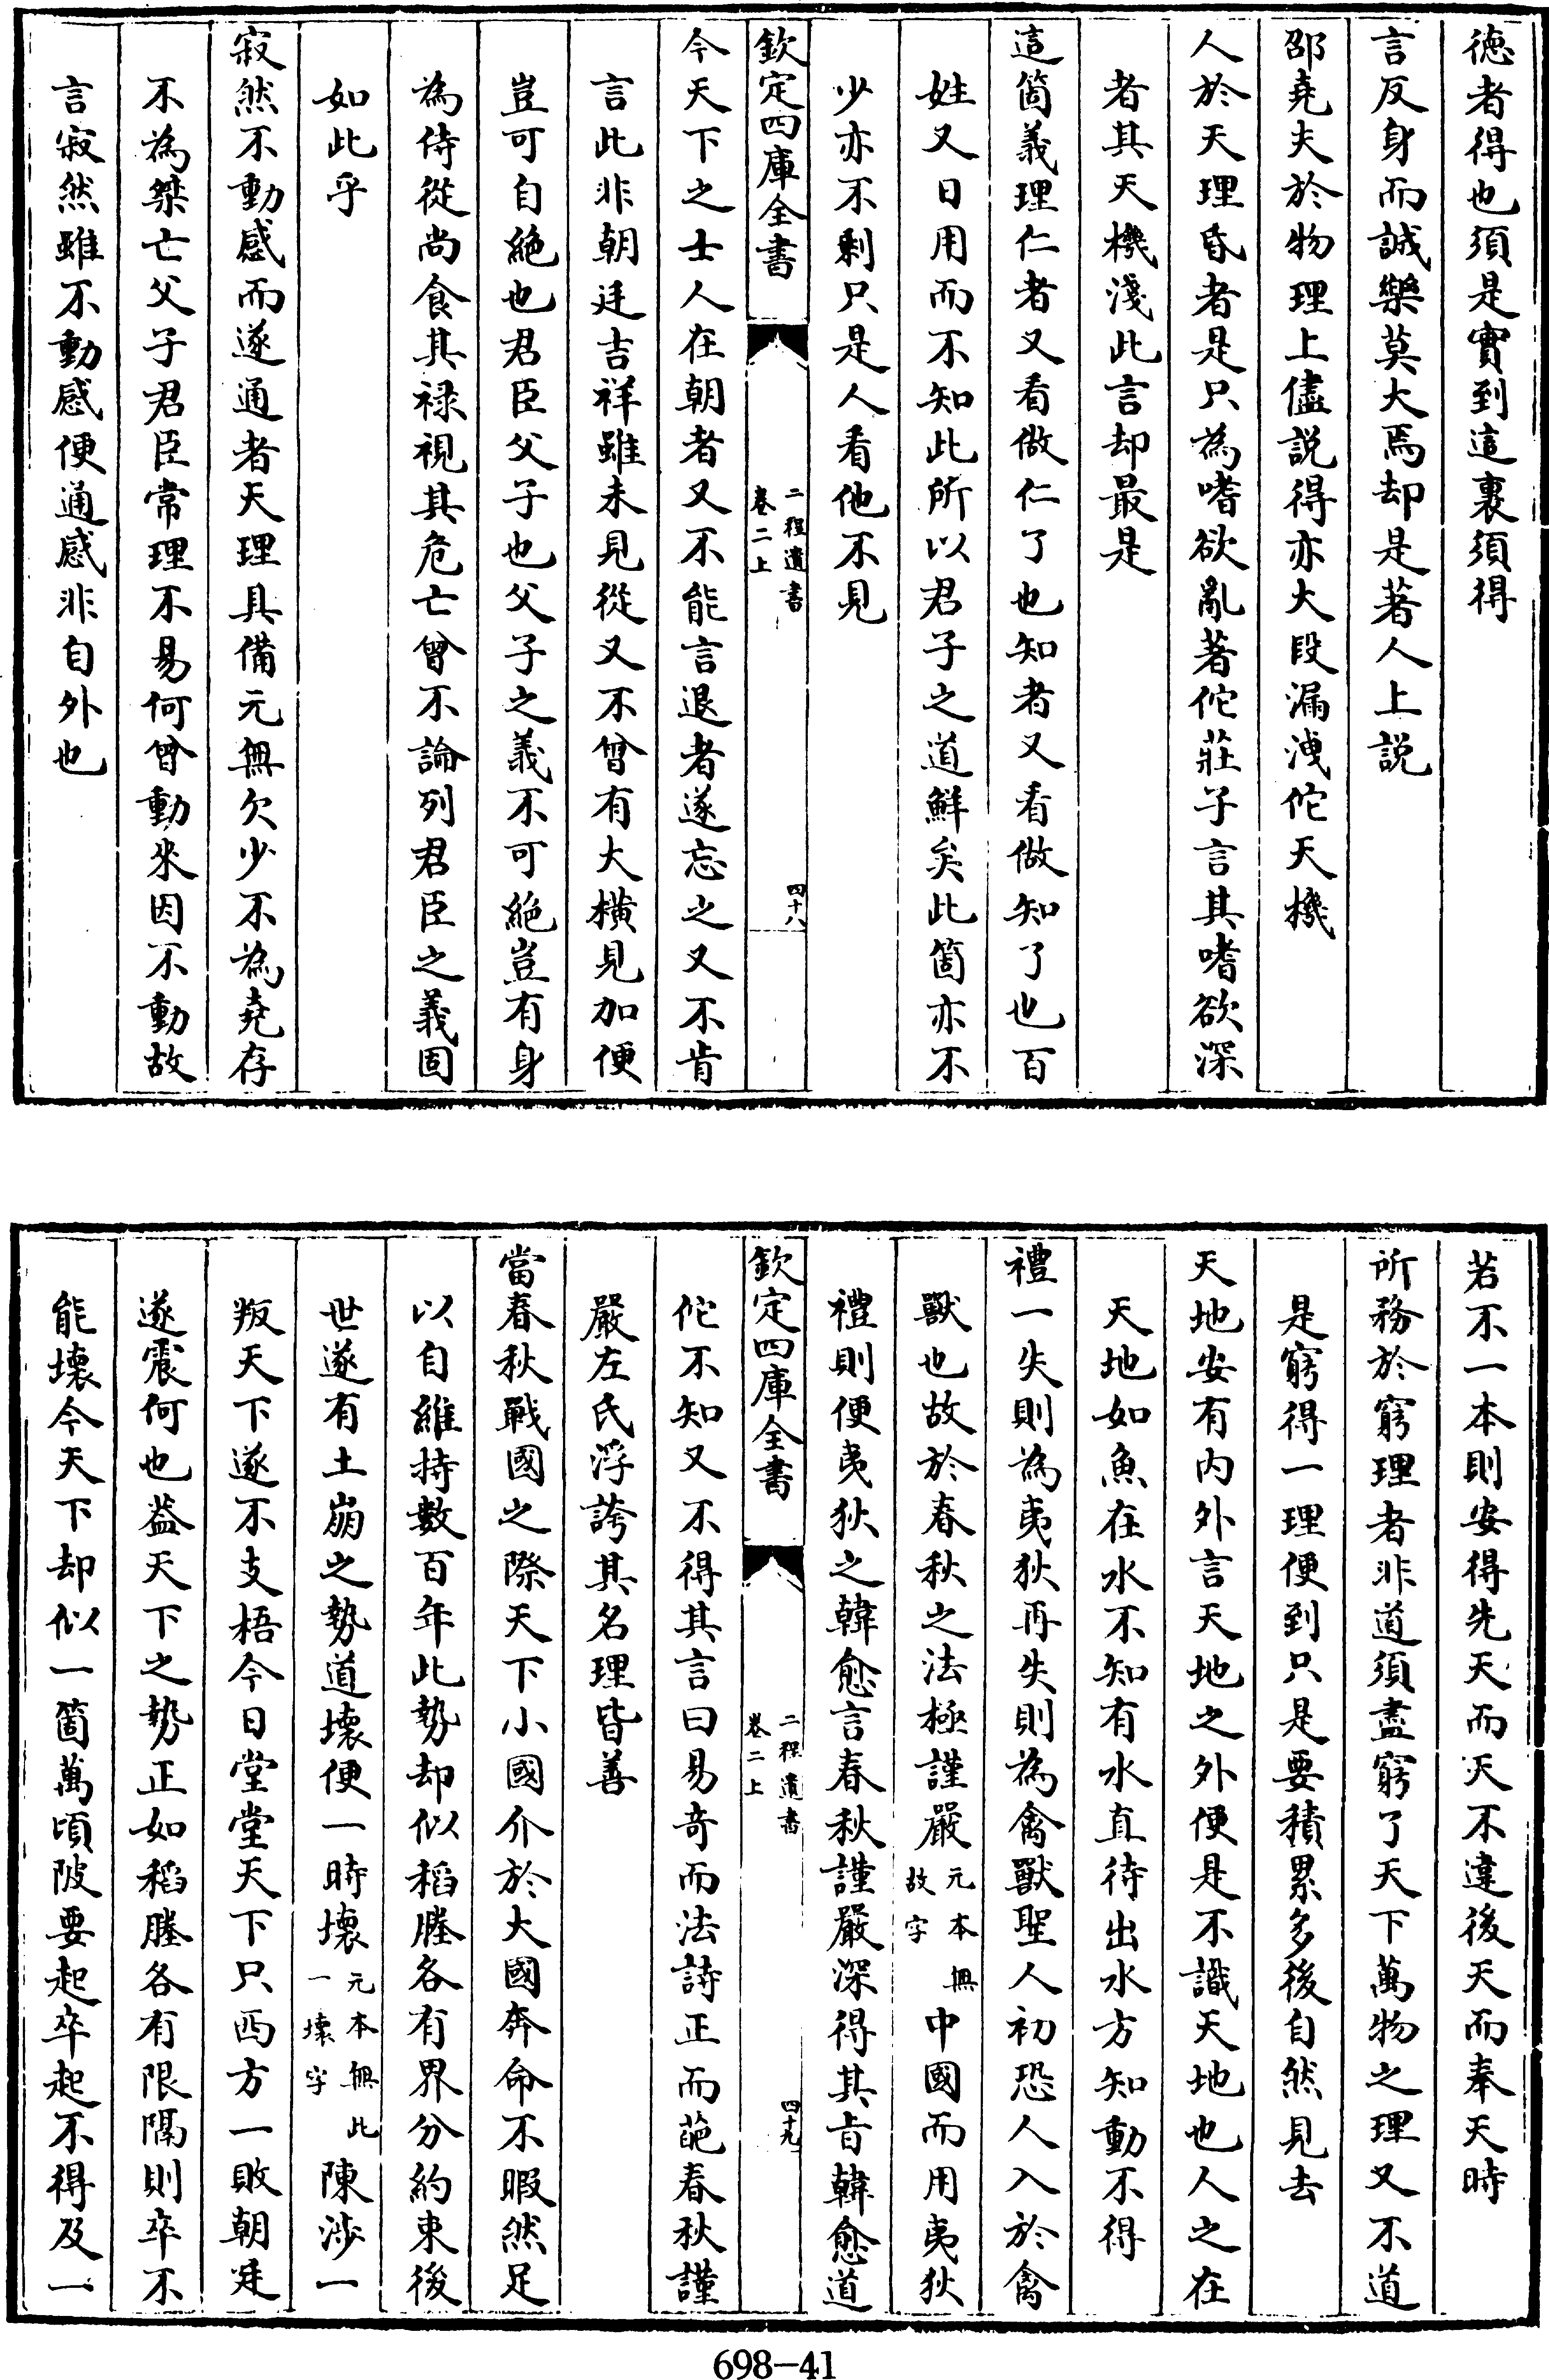 德者得也須是實到這裏須得
言反身而誠樂莫大焉却是著人上説
邵堯夫於物理上儘説得亦大段漏洩佗天機
人於天理昏者是只為嗜欲亂著佗莊子言其嗜欲深
者其天機淺此言却最是
這箇義理仁者又看做仁了也知者又看做知了也百
姓又日用而不知此所以君子之道鮮矣此箇亦不
少亦不剩只是人看他不見
欽定四庫全書
二程遺書
卷二上
四十八
今天下之士人在朝者又不能言退者遂忘之又不肯
言此非朝廷吉祥雖未見從又不曾有大橫見加便
豈可自絶也君臣父子也父子之義不可絶豈有身
為侍從尚食其禄視其危亡曾不論列君臣之義固
如此乎
寂然不動感而遂通者天理具備元無欠少不為堯存
不為桀亡父子君臣常理不易何曾動來因不動故
言寂然雖不動感便通感非自外也
若不一本則安得先天而天不違後天而奉天時
所務於窮理者非道須盡窮了天下萬物之理又不道
是窮得一理便到只是要積累多後自然見去
天地安有内外言天地之外便是不識天地也人之在
天地如魚在水不知有水直待出水方知動不得
禮一失則為夷狄再失則為禽獸聖人初恐人入於禽
獸也故於春秋之法極謹嚴元本無故字中國而用夷狄
禮則便夷狄之韓愈言春秋謹嚴深得其旨韓愈道
欽定四庫全書
二程遺書
卷二上
四十九
佗不知又不得其言曰易奇而法詩正而葩春秋謹
嚴左氏浮誇其名理皆善
當春秋戰國之際天下小國介於大國奔命不暇然足
以自維持數百年此勢却似稻塍各有界分約束後
世遂有土崩之勢道壞便一時壞元本無此一壞字陳涉一
叛天下遂不支梧今日堂堂天下只西方一敗朝廷
遂震何也葢天下之勢正如稻塍各有限隔則卒不
能壞今天下却似一箇萬頃陂要起卒起不得及一
698-41